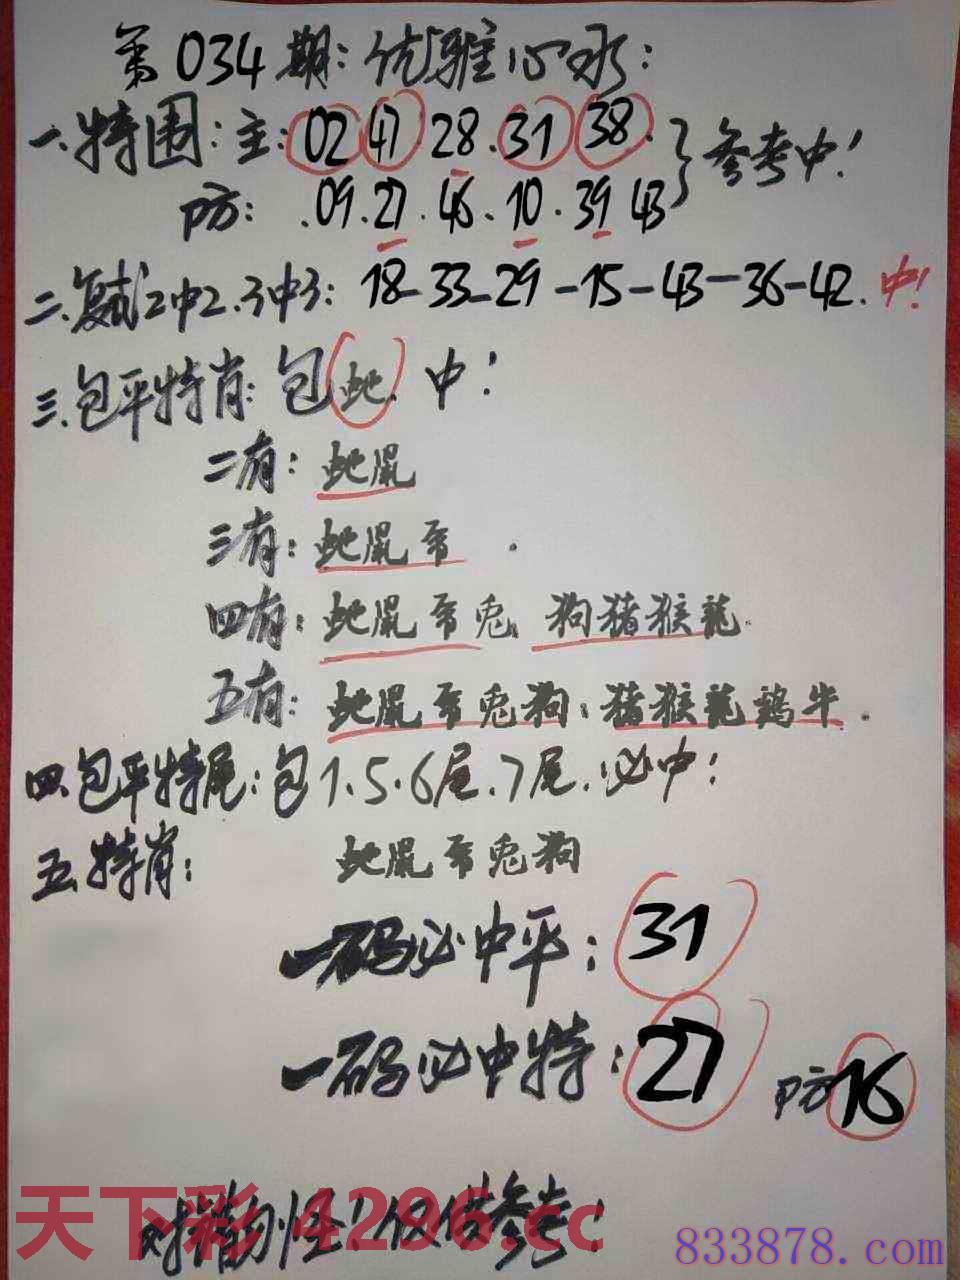 第034期：优雅心水：
一.特围：主：02 47 28.31 38. 参考中！
防：.09.27.46.10.39 43
二.复试2中2.3中3：18-33-29-15-43-36-42.中!
三.包平特肖：包蛇.中！
二有：蛇鼠
三有：蛇鼠
四有：蛇鼠 兔 狗猪猴龍
五有：蛇鼠 兔狗：猪猴龍鷄牛.
四.包平特尾：包1.5.6尾.7尾.必中！
五.特肖： 蛇鼠 兔狗
一码必中平：31
一码必中特：27 防16
对错勿怪！仅供参考！
天下彩 4296.cc
833878.com